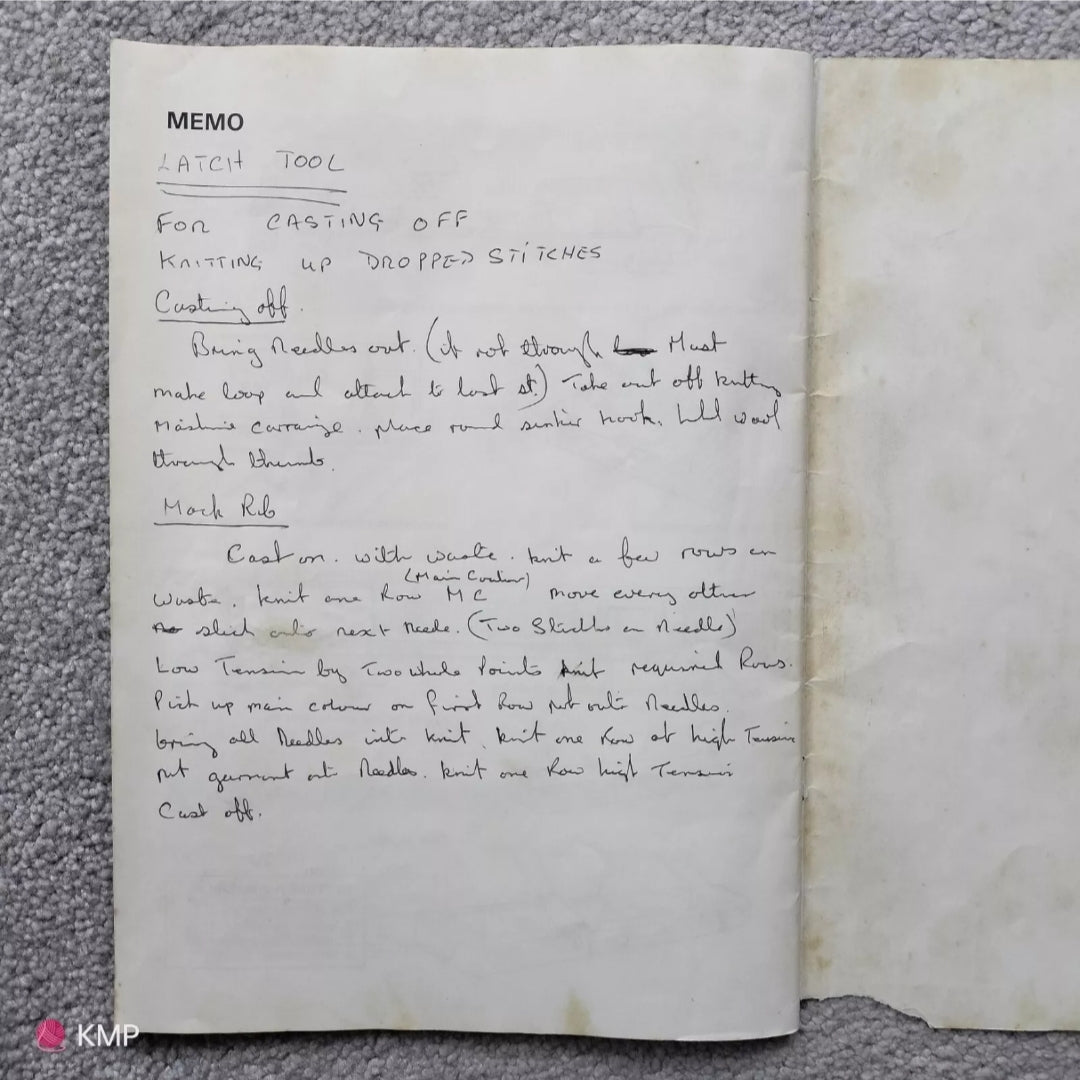 MEMO
LATCH TOOL
FOR CASTING OFF
KNITTING UP DROPPED STITCHES
Casting off.
Bring Needles out. (if not through Must
make loop and attach to last st.) Take out off knitting
Mashine carraige. place round sinker hook. hold wool
through thumb.
Mock Rib
Cast on. with waste. knit a few rows in
(Main Coulour)
waste. knit one Row MC move every other
stich onto next Neede. (Two Stichs on Needle)
Low Tension by Two whole Points knit required Rows.
Pick up main colour on first Row put onto Needles.
bring all Needles into knit. knit one Row at high Tension
put garment onto Needles. knit one Row high Tension
Cast off.
KMP